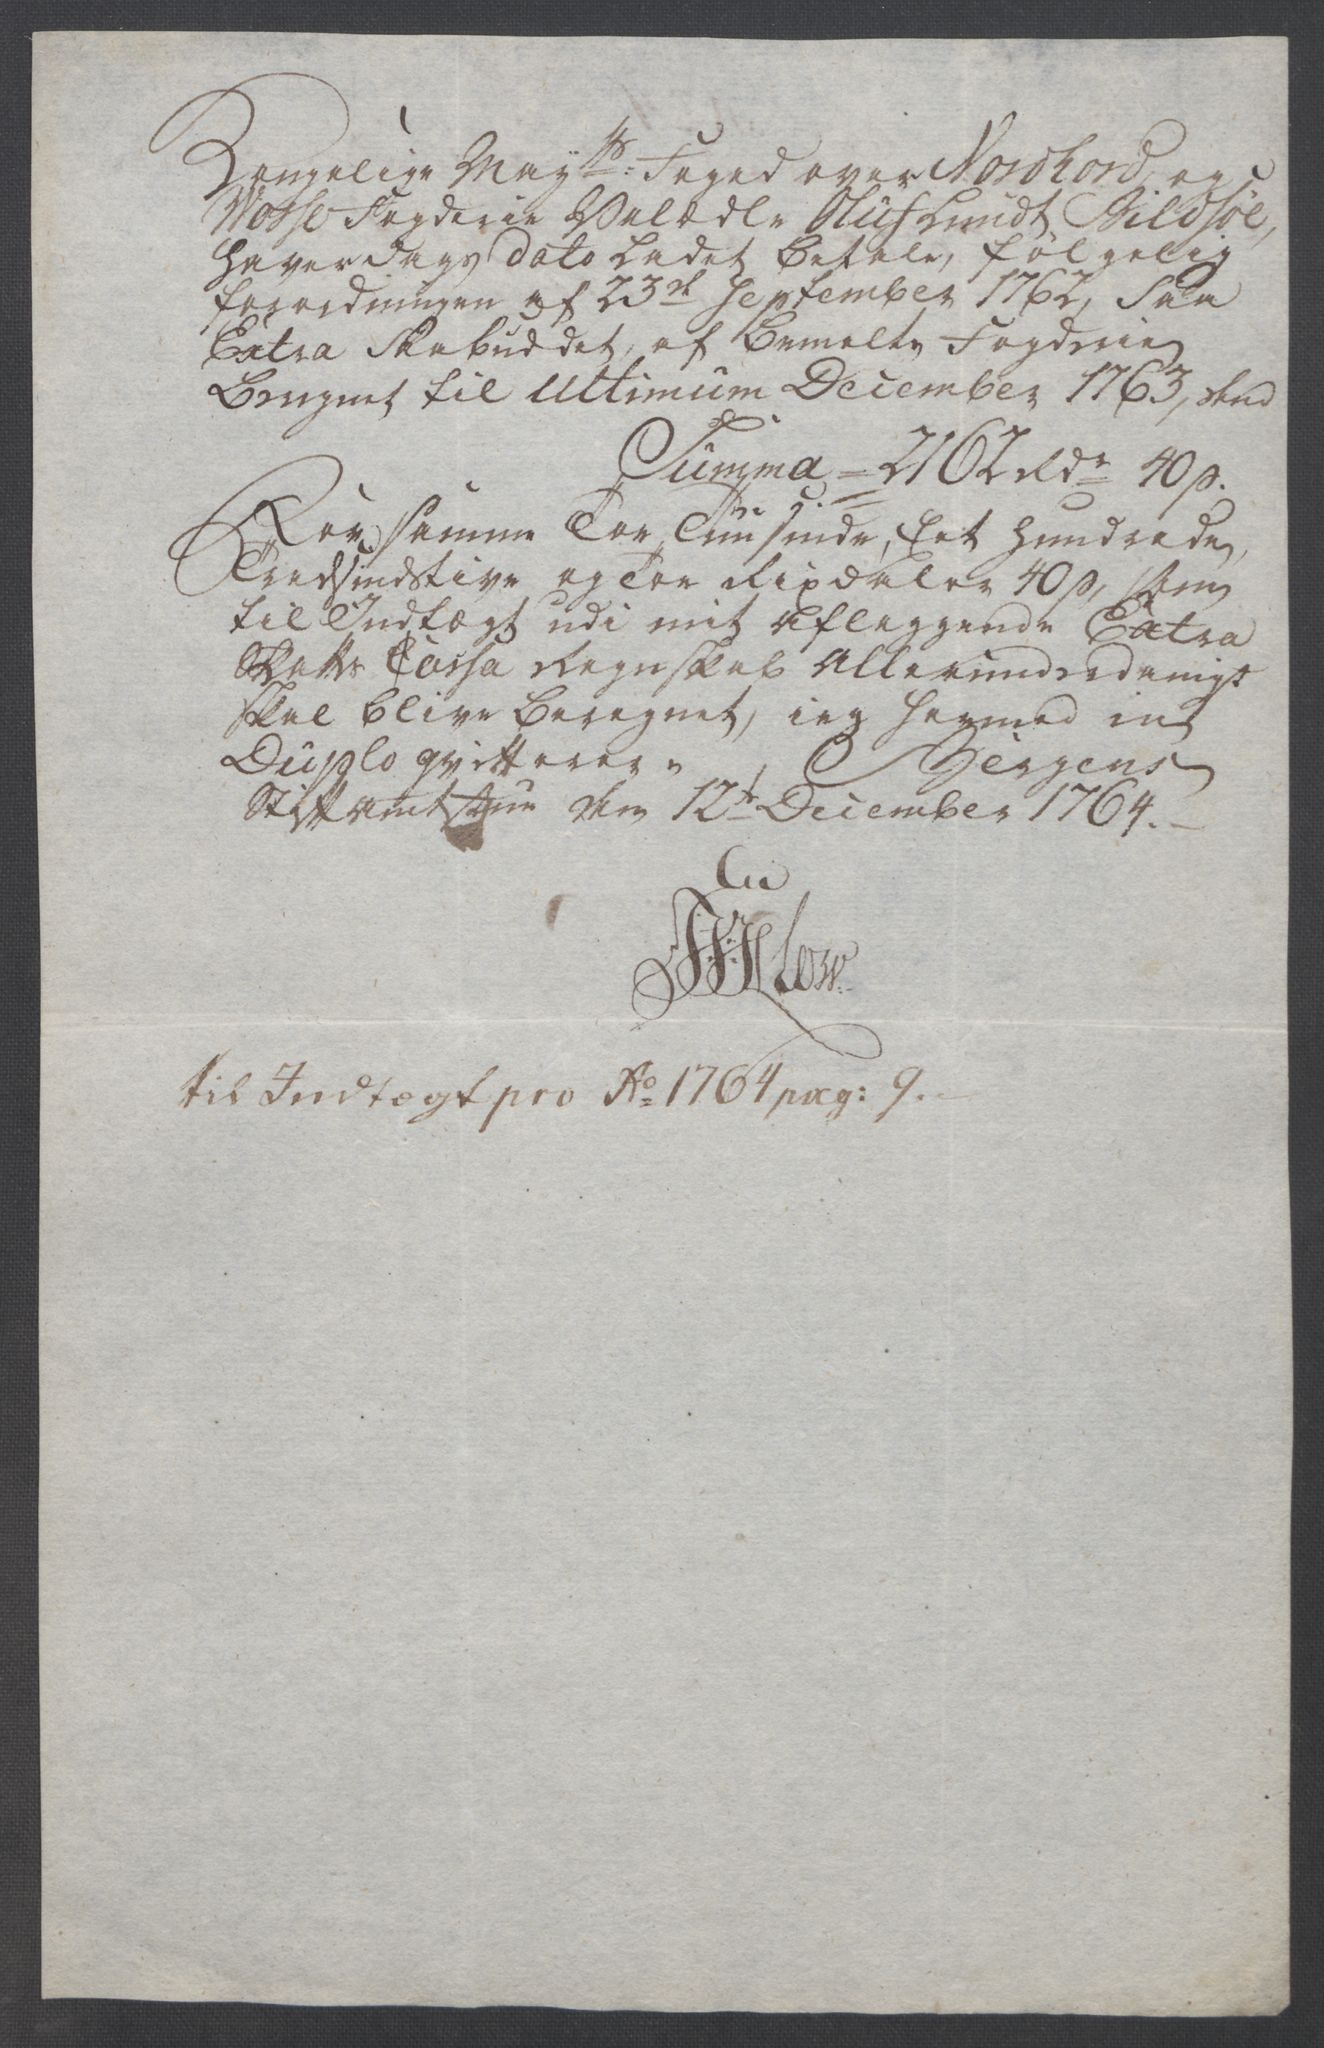 Kongelige Mayts: Foged over Nordhord, og
Vosse Fogderie Velædle Oluf Lundt Bildsøe,
haver Dags Dato Ladet betale, følgelig
forordningen af 23de September 1762, Saa
Extra Skabuddet, af bemelte Fogderie
Beregnet til Ultimum December 1763, med
Summa = 2162 Rdr 40 s.
For samme Toe Tusinde, Eet Hundrede,
Tredsindstive og Toe Rixdaler 40 s, som
til Indtægt udi mit aflæggende Extra
Skatts Cassa Regnskab Allerunderdanigst
skal blive Beregnet, ieg hermed in
Duplo qvitterer. Bergens
Stiftamtstue den 12te December 1764.
til Indtægt pro Ao 1764 pag: 9.